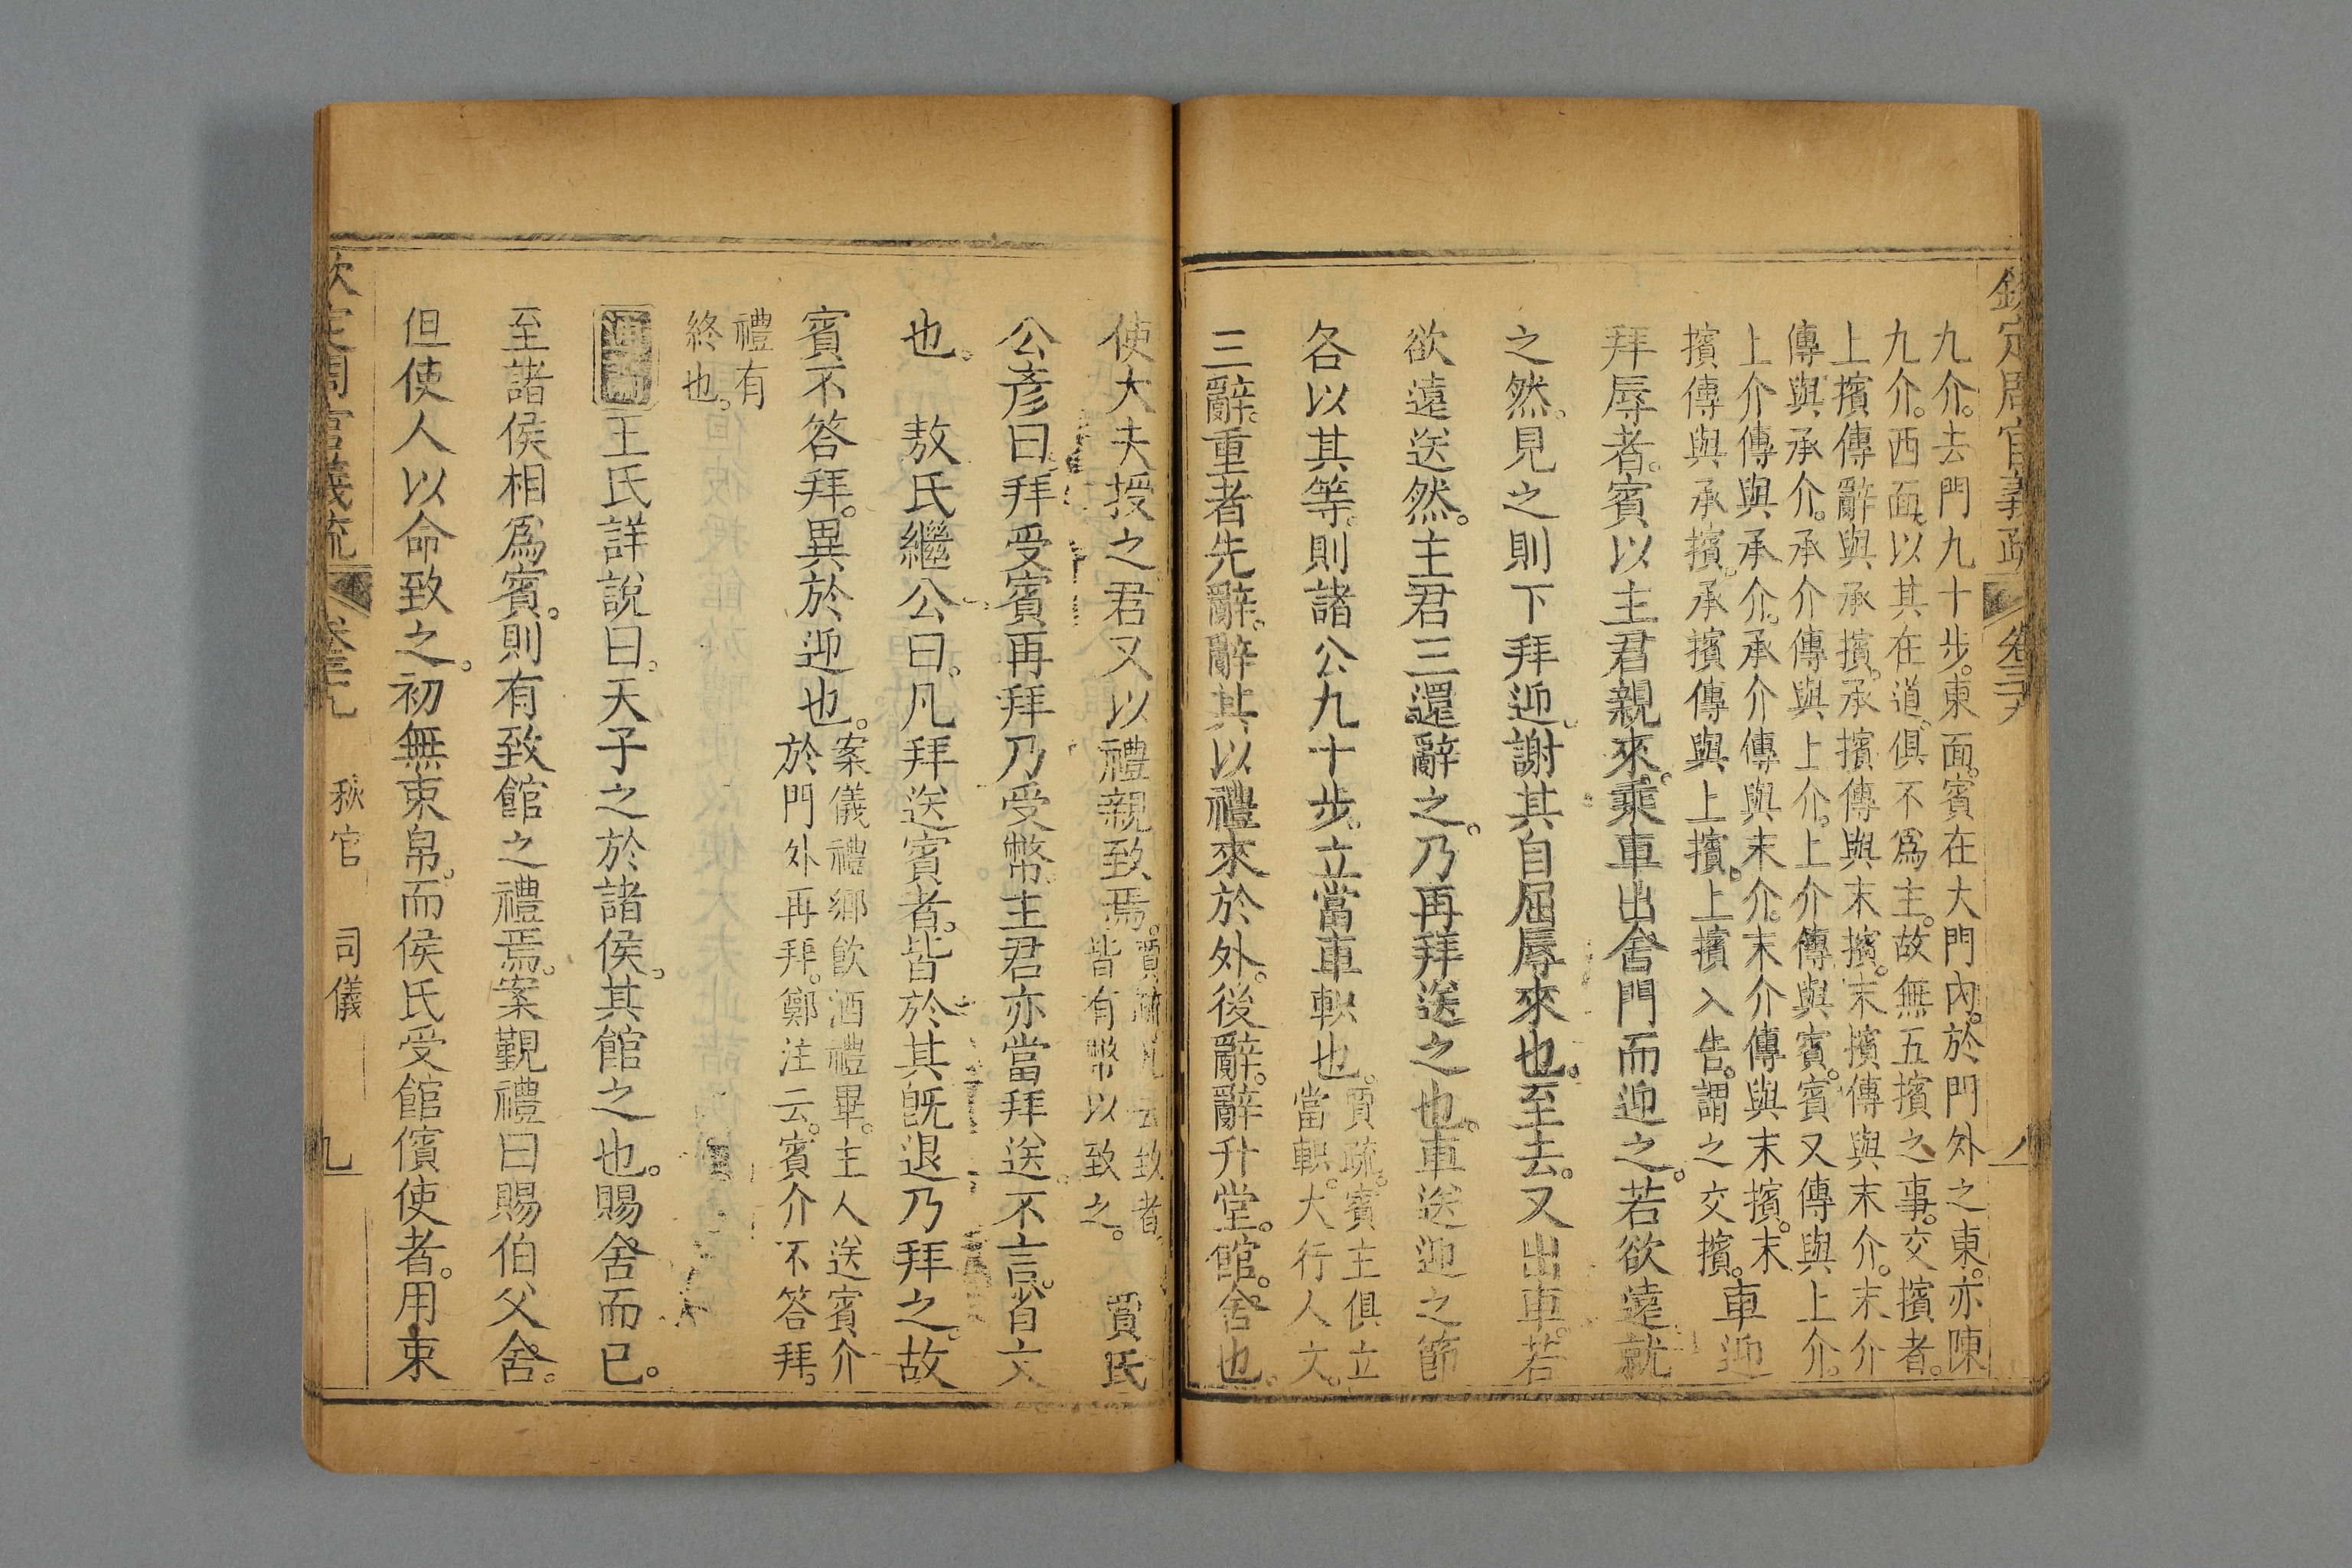 欽定周官義疏 卷三十九 八
九介。去門九十步。東面。賓在大門內。於門外之東。亦陳
九介。西面。以其在道。俱不爲主。故無五擯之事。交擯者。
上擯傳辭與承擯。承擯傳與末擯。末擯傳與末介。末介
傳與承介。承介傳與上介。上介傳與賓。賓又傳與上介。
上介傳與承介。承介傳與末介。末介傳與末擯。末
擯傳與承擯。承擯傳與上擯。上擯入告。謂之交擯。車迎
拜辱者。賓以主君親來。乘車出舍門而迎之。若欲遠就
之然。見之則下拜迎。謝其自屈辱來也。至去。又出車。若
欲遠送然。主君三還辭之。乃再拜送之也。車送迎之節
各以其等。則諸公九十步。立當車軹也。賈疏。賓主俱立
當軹。大行人文。
三辭。重者先辭。辭其以禮來於外。後辭。辭升堂。館。舍也。
使大夫授之君又以禮親致焉。賈疏。凡云致者
皆有幣以致之。 賈氏
公彥曰。拜受賓再拜乃受幣。主君亦當拜送。不言。省文
也。 敖氏繼公曰。凡拜送賓者。皆於其旣退乃拜之。故
賓不答拜。異於迎也。案儀禮鄉飲酒禮畢。主人送賓介
於門外再拜。鄭注云。賓介不答拜。
禮有
終也。
王氏詳說曰。天子之於諸侯。其館之也。賜舍而已。
至諸侯相爲賓。則有致館之禮焉。案覲禮曰賜伯父舍。
但使人以命致之。初無束帛。而侯氏受館儐使者。用束
欽定周官義疏 卷三十九 秋官 司儀 九